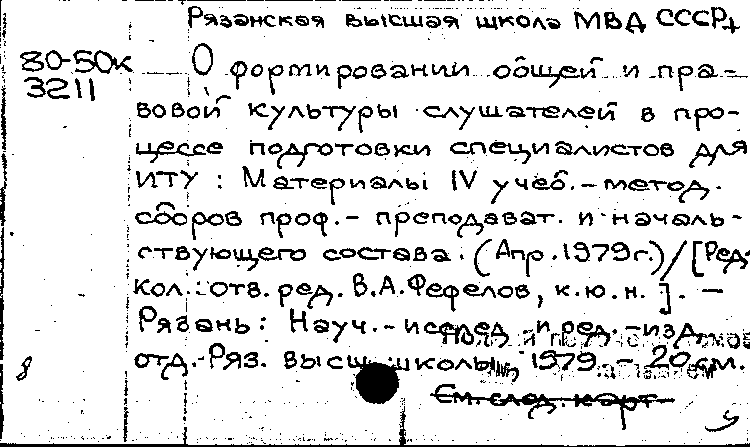 Рязанская высшая школа МВД СССР
80-50к
3211
О формировании общей и пра-
вовой культуры слушателей в про-
цессе подготовки специалистов для
ИТУ : Материалы IV учеб.-метод.
сборов проф.- преподават. и началь-
ствующего состава. (Апр. 1979г.)/[Ред.
кол.: отв. ред. В.А.Фефелов, к.ю.н.]. –
Рязань : Науч.-исслед. и ред.-изд.
отд. Ряз. высш. школы, 1979. – 20 см.
8
См. след. карт